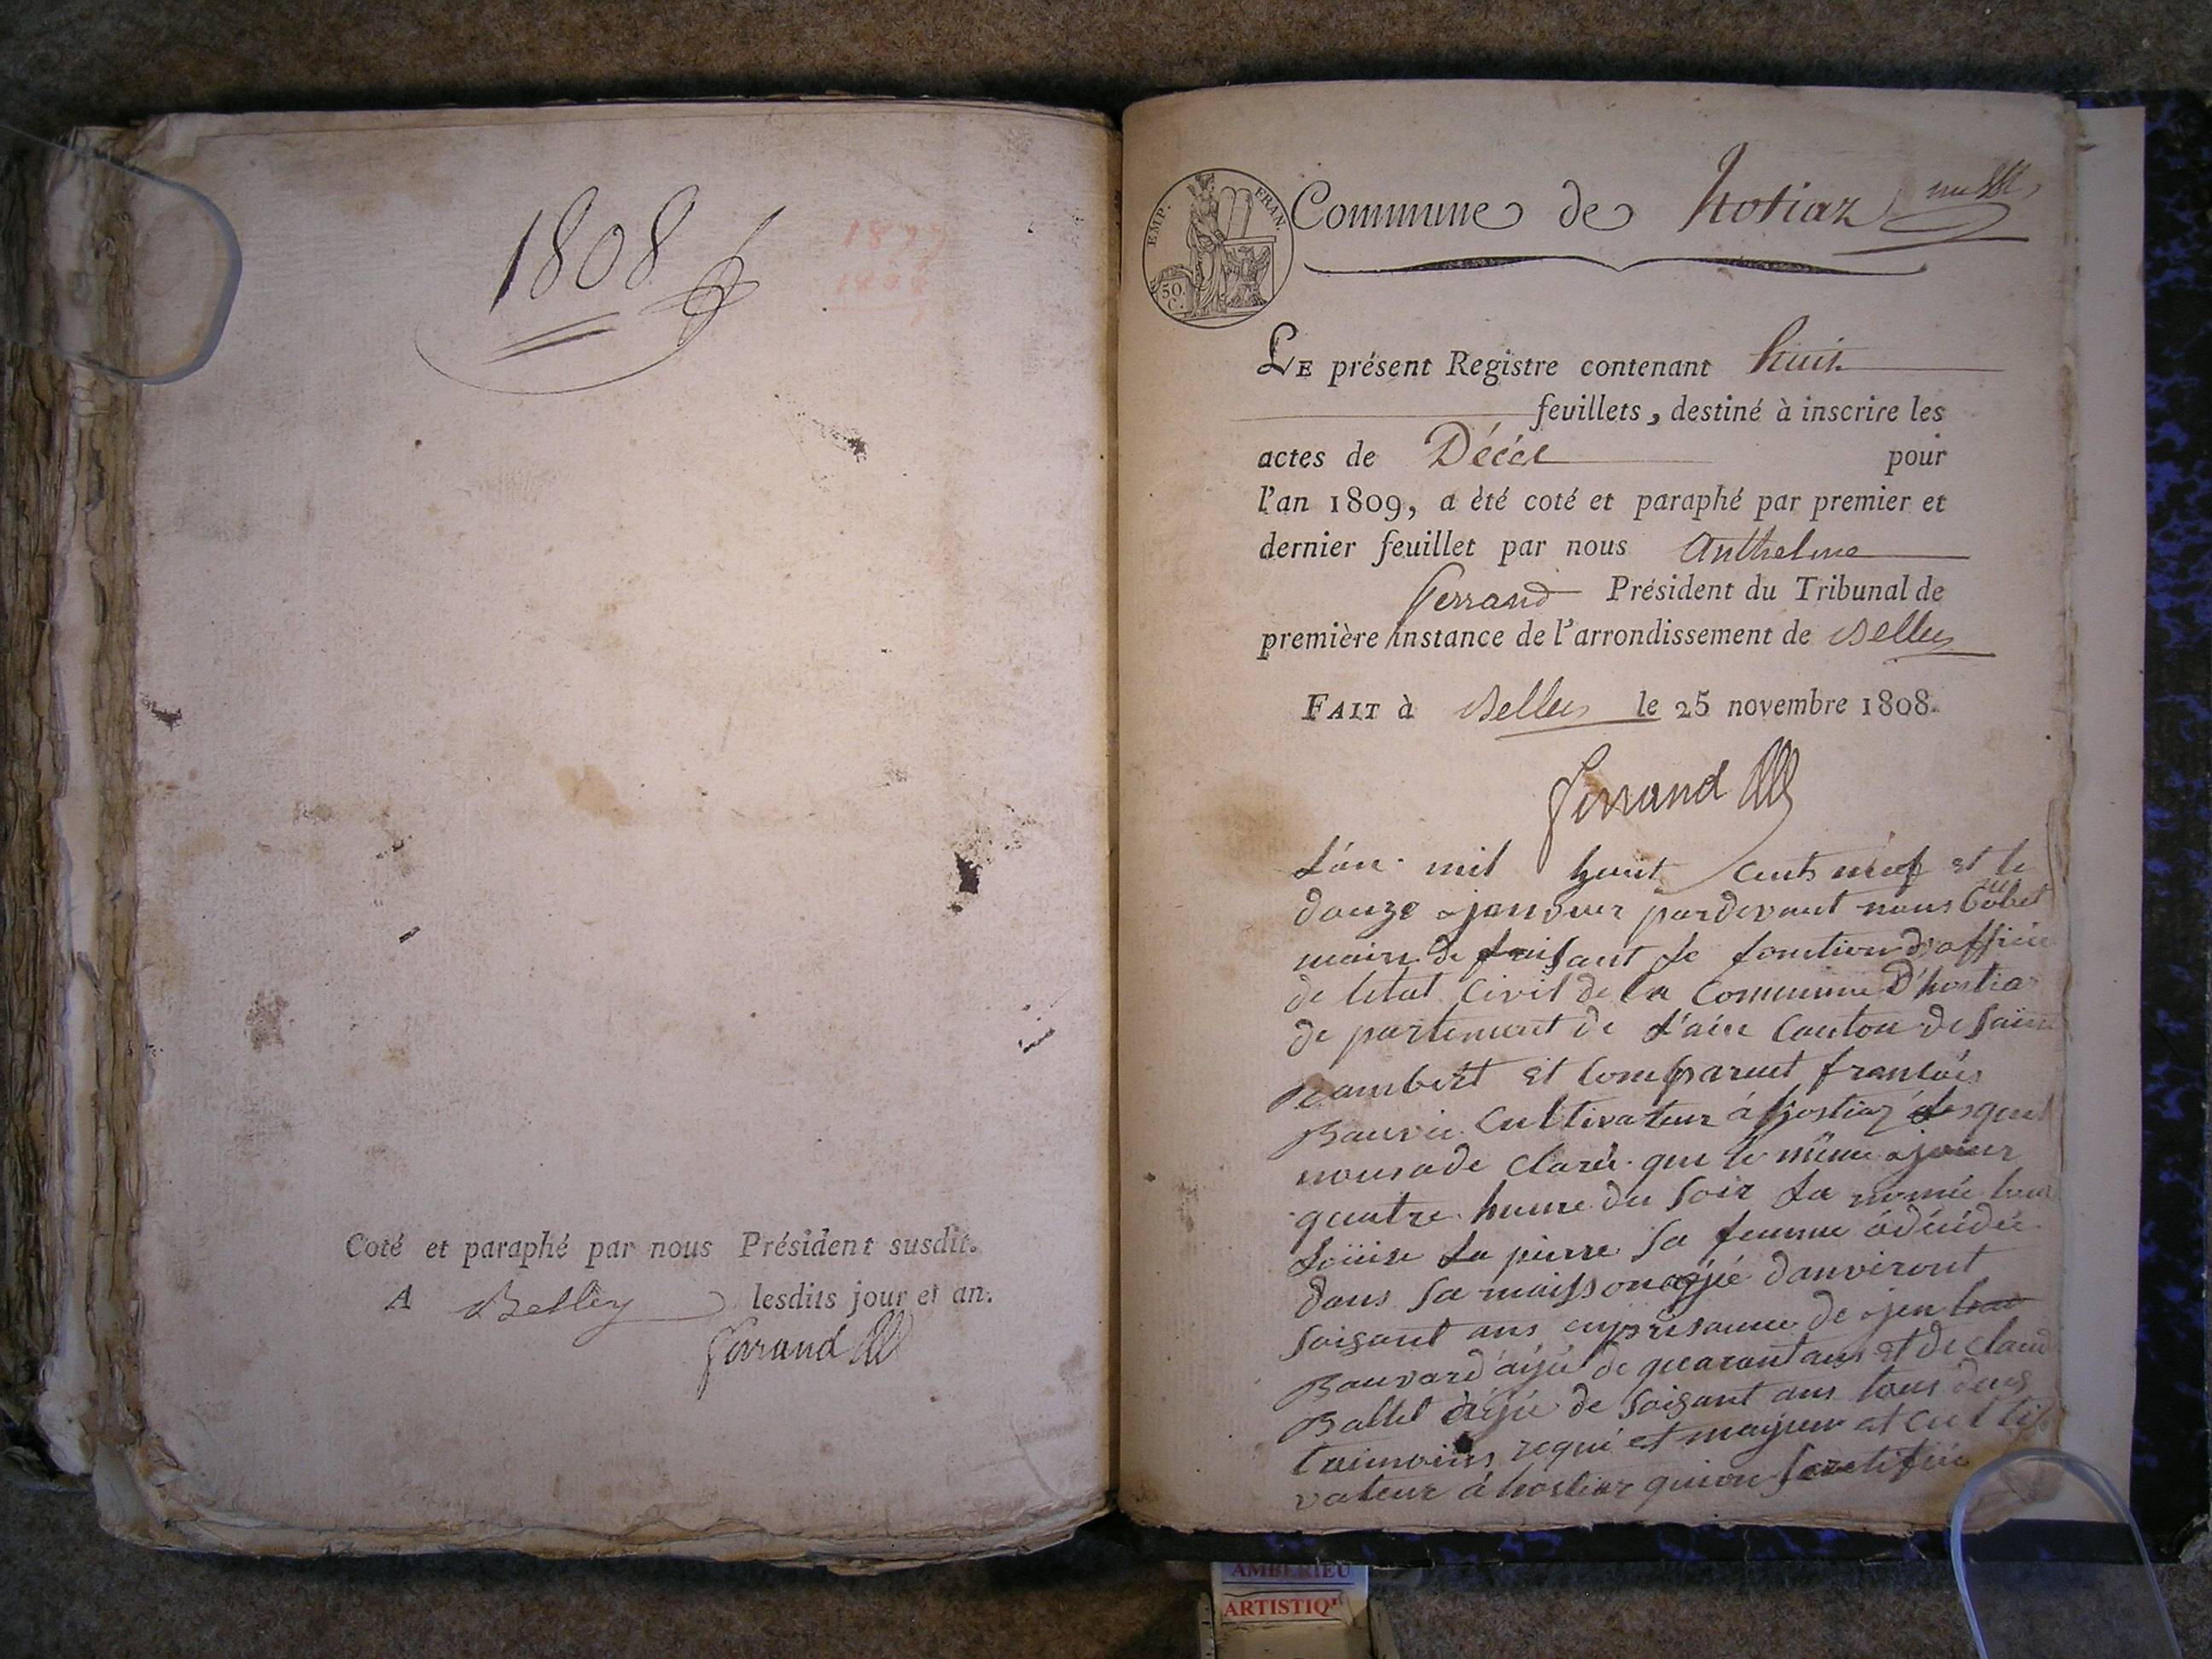 1808
Coté et paraphé par nous Président susdit.
A Belley lesdits jour et an.
Ferrand
EMP. FRAN.
50. C.
Commune de hotiaz
LE présent Registre contenant huit
feuillets, destiné à inscrire les
actes de Décès pour
l'an 1809, a èté coté et paraphé par premier et
dernier feuillet par nous Anthelme
Ferrand Président du Tribunal de
première instance de l'arrondissement de Belley
FAIT à Belley le 25 novembre 1808.
Ferrand
L'an mil huit cents neof et le
douze janvier pardevant nous Cobet
maire de faisant le fonction d'officie
de letat Civil de la Commune D'hostia
de partement de L'ain Canton de Saint
Rambert et Comparuet francois
Bauvie Cultivateur á hostiaz lesquel
nousade claré que le mëme jour
quatre heure du soir La nomée
Loüise La pierre sa femme ádécédée
dans sa maisson agjée danviront
soisant ans en prisance de jen
Bauvard ájé de quarant ans et de claud
Ballet àjée de soisant ans tous deus
taimoins requi et majeur et culti
vateur á hostiaz quion
AMBERIEU
ARTISTIQ